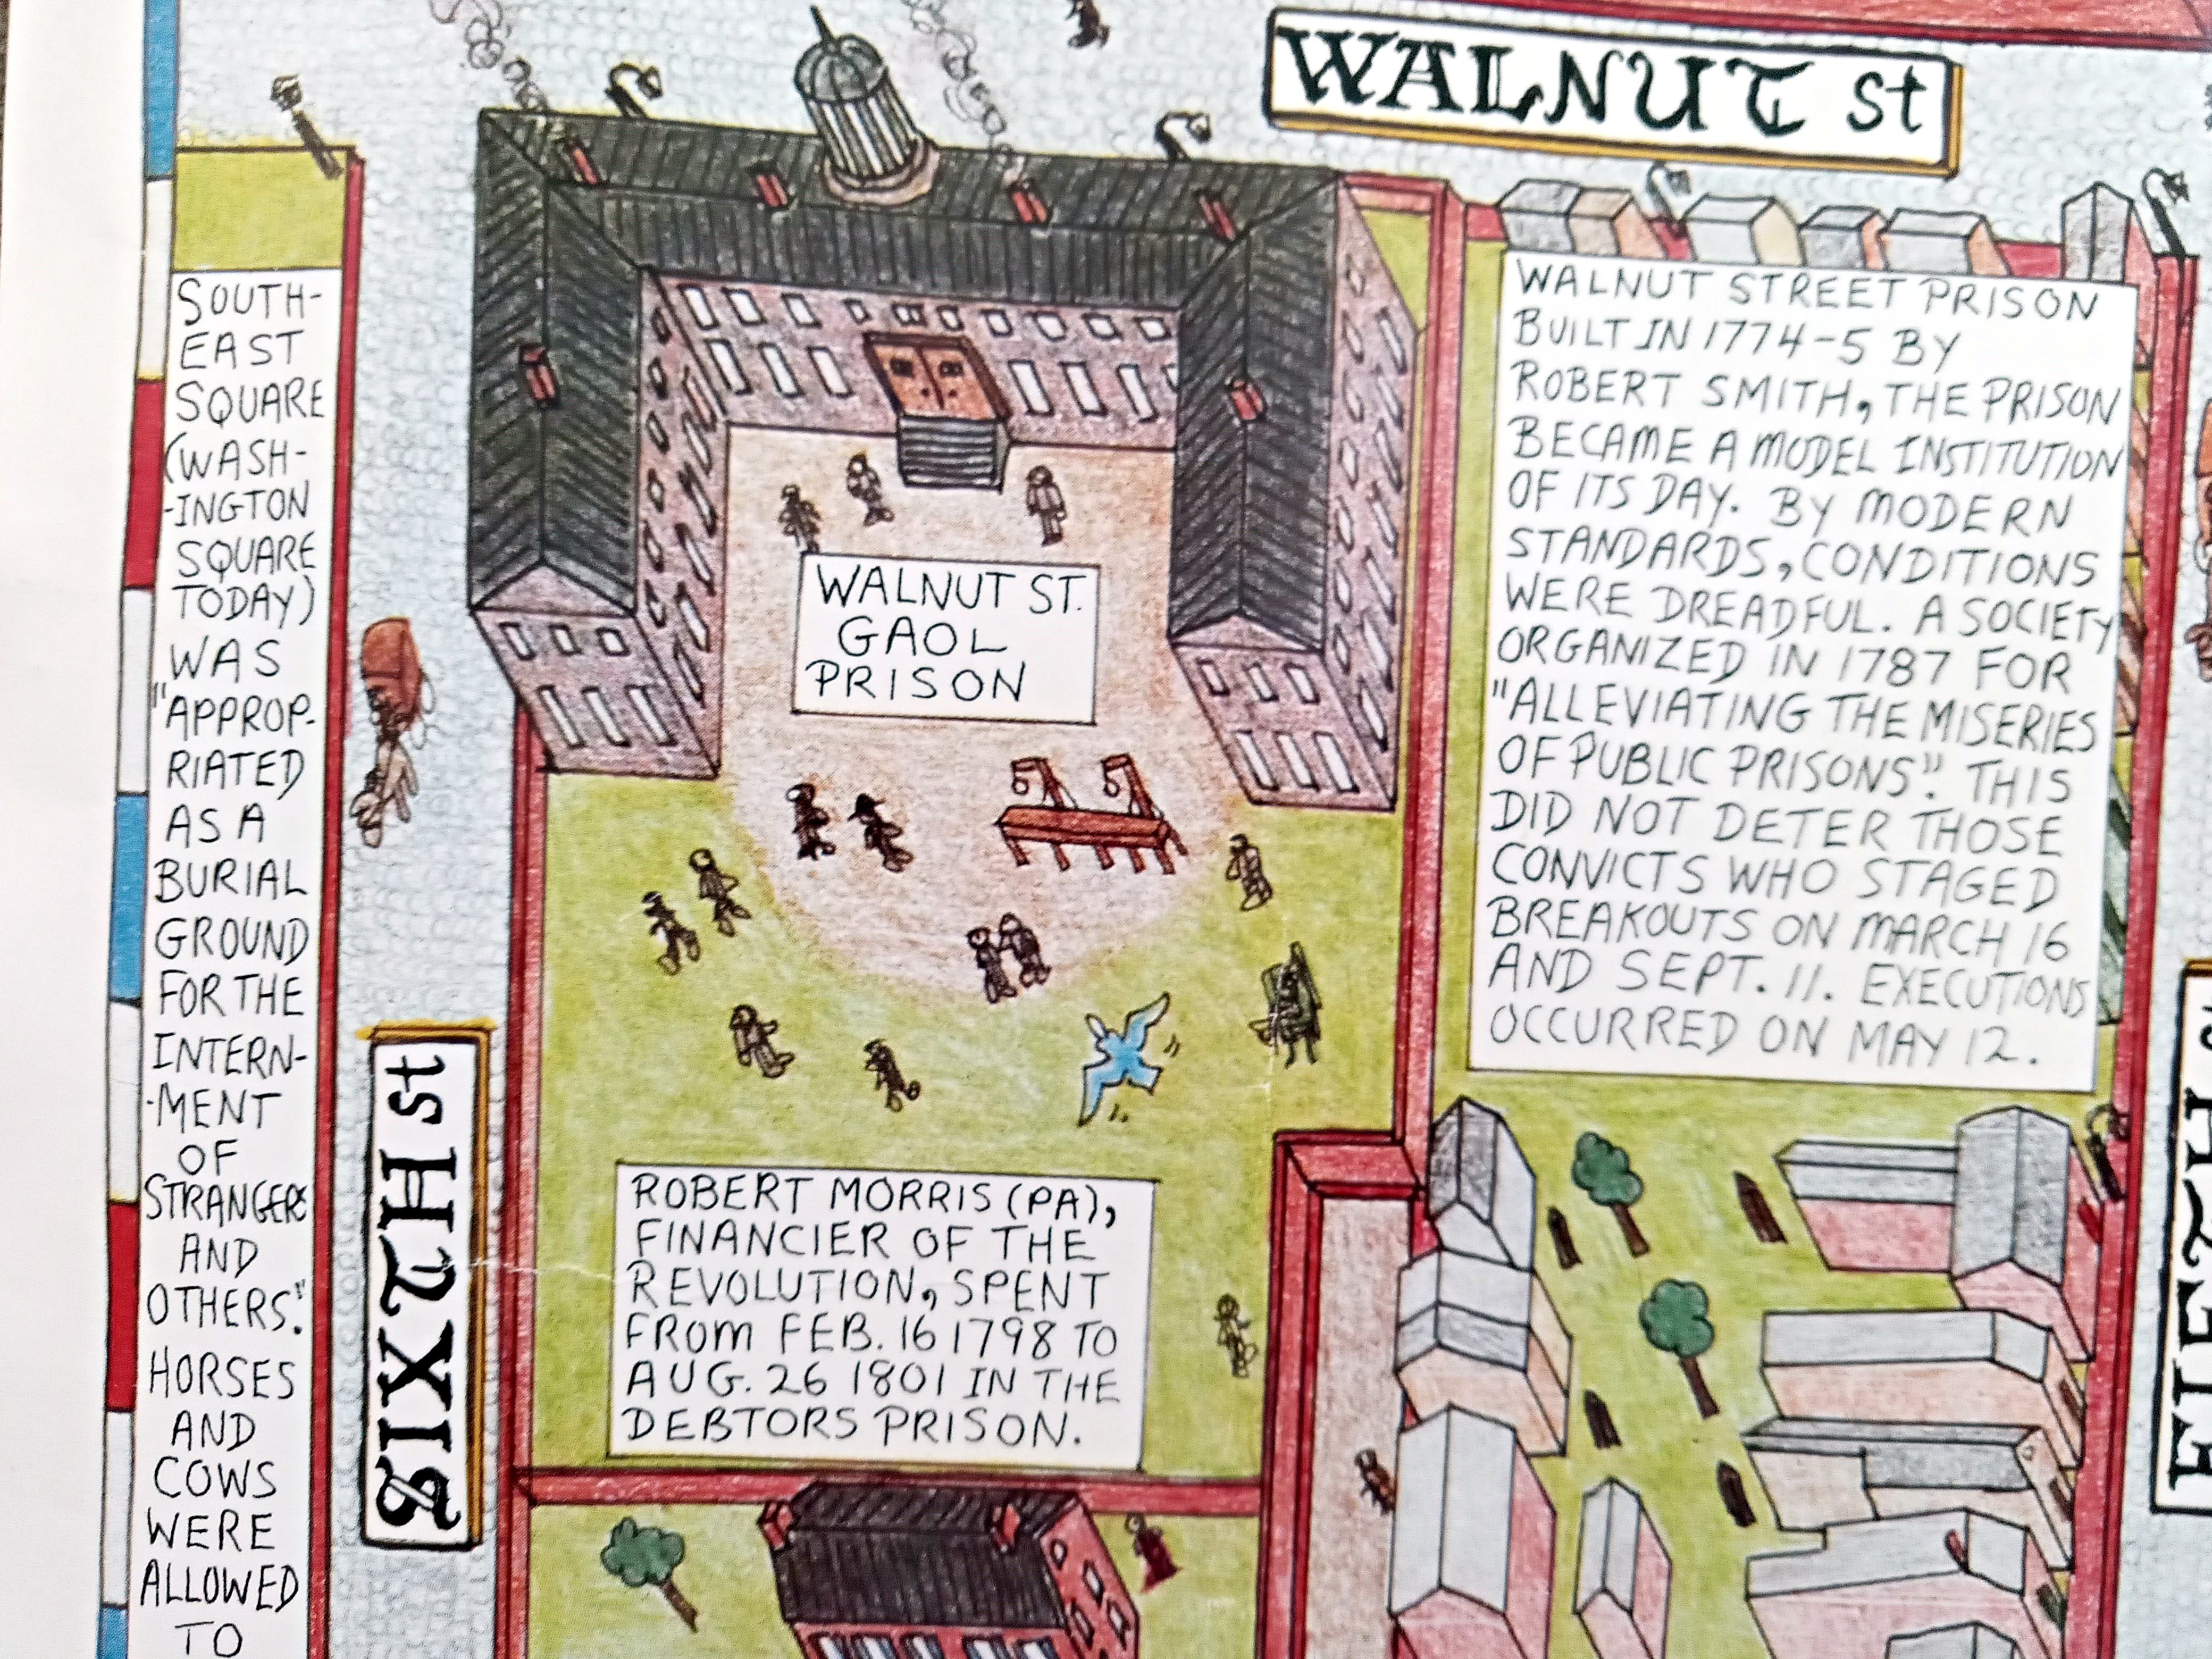 WALNUT St
SOUTH-
EAST
SQUARE
(WASH-
-INGTON
SQUARE
TODAY)
WAS
"APPROP-
RIATED
AS A
BURIAL
GROUND
FOR THE
INTERN-
-MENT
OF
STRANGERS
AND
OTHERS."
HORSES
AND
COWS
WERE
ALLOWED
TO
SIXTH St
WALNUT ST.
GAOL
PRISON
ROBERT MORRIS (PA),
FINANCIER OF THE
REVOLUTION, SPENT
FROM FEB. 16 1798 TO
AUG. 26 1801 IN THE
DEBTORS PRISON.
WALNUT STREET PRISON
BUILT IN 1774-5 BY
ROBERT SMITH, THE PRISON
BECAME A MODEL INSTITUTION
OF ITS DAY. BY MODERN
STANDARDS, CONDITIONS
WERE DREADFUL. A SOCIETY
ORGANIZED IN 1787 FOR
"ALLEVIATING THE MISERIES
OF PUBLIC PRISONS". THIS
DID NOT DETER THOSE
CONVICTS WHO STAGED
BREAKOUTS ON MARCH 16
AND SEPT. 11. EXECUTIONS
OCCURRED ON MAY 12.
FIFTH